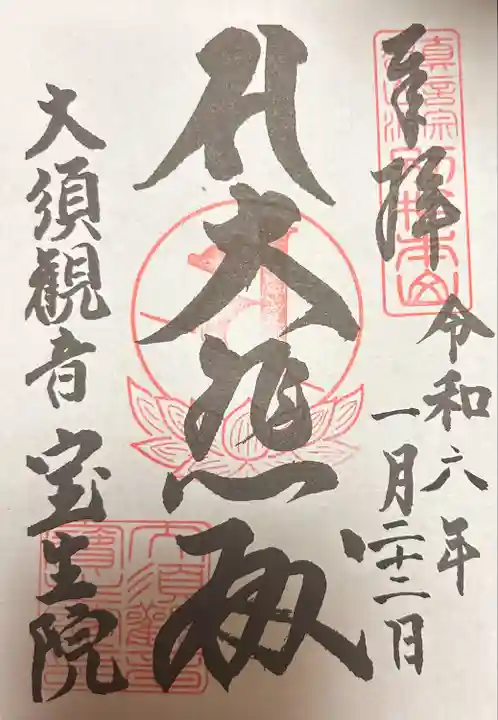 奉拝
令和六年
一月二十二日
大悲殿
大須觀音 宝生院